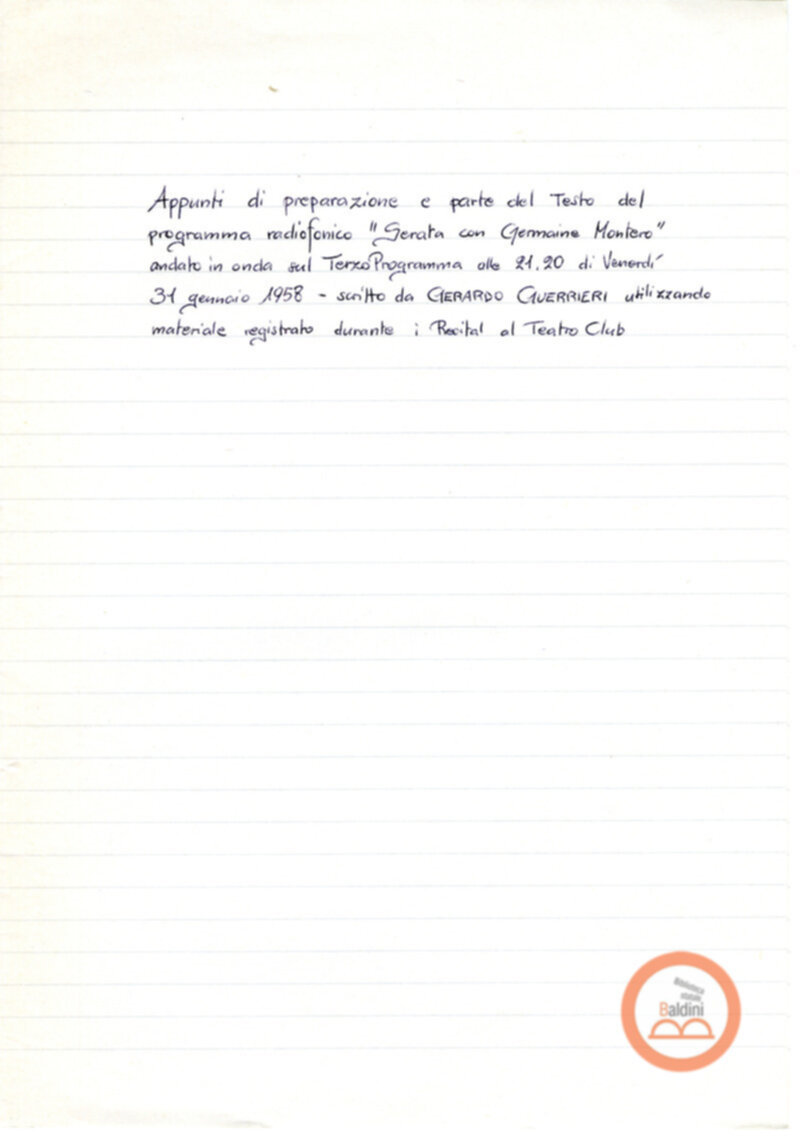 Appunti di preparazione e parte del Testo del
programma radiofonico "Serata con Germaine Montero"
andato in onda sul Terzo Programma alle 21.20 di Venerdí
31 gennaio 1958 - scritto da GERARDO GUERRIERI utilizzando
materiale registrato durante i Recital al Teatro Club
Biblioteca
statale
Baldini